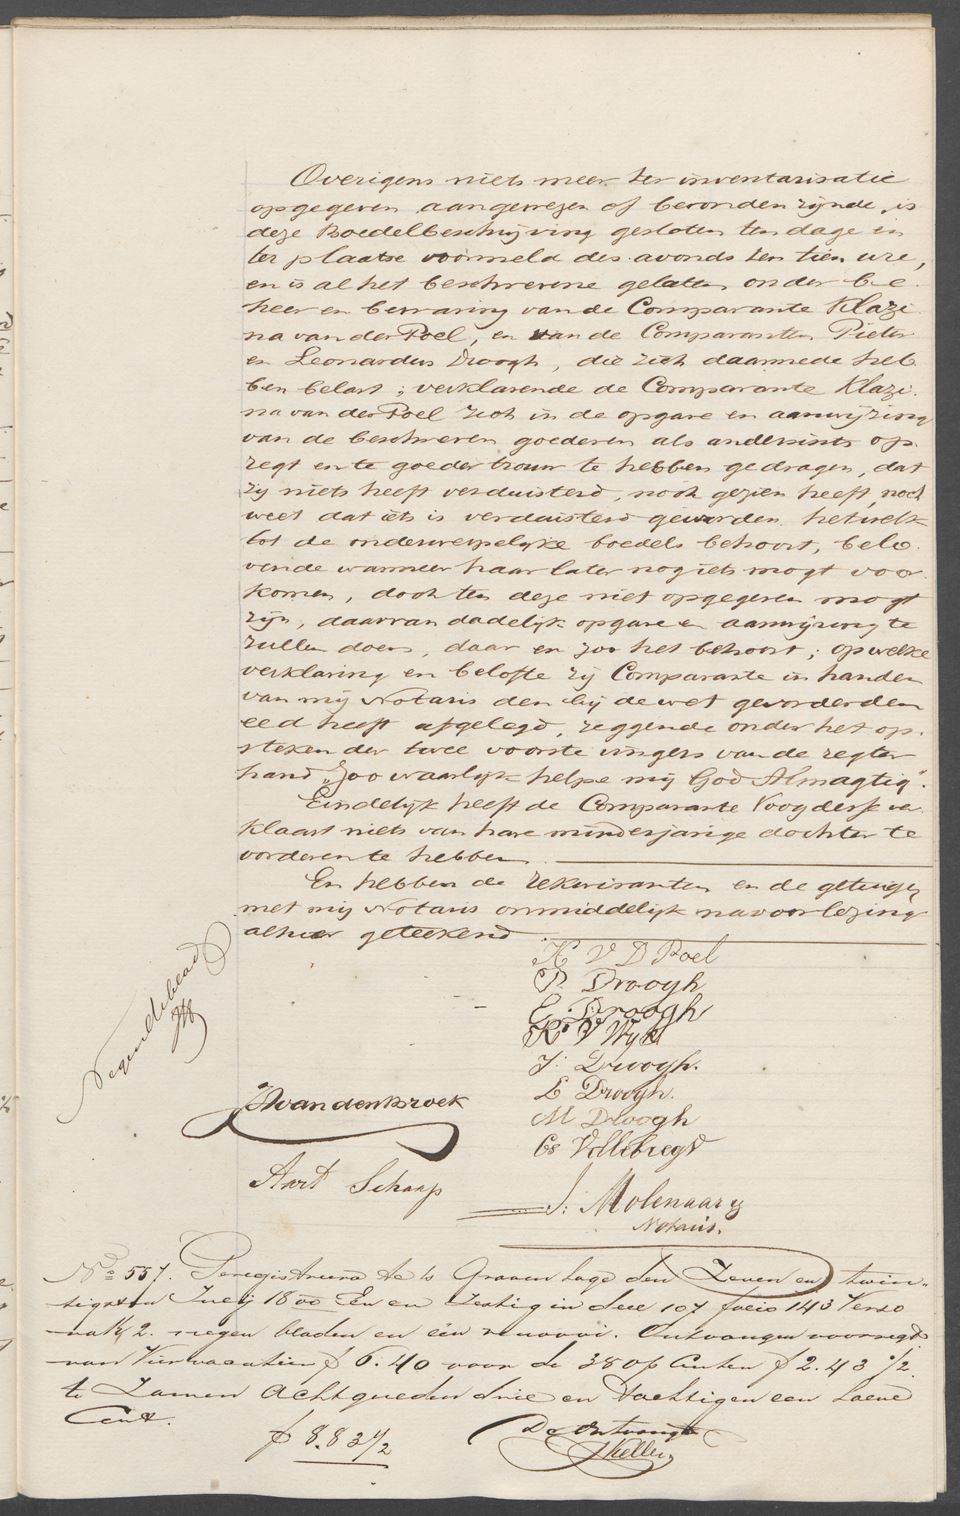 Overigens niets meer ter inventarisatie
opgegeven aangewezen of bevonden zijnde, is
deze Boedelbeschrijving gesloten ten dage en
ter plaatse voormeld des avonds ten tien ure,
en is al het beschrevene gelaten onder be-
heer en bewaring van de Comparante Klazi-
na van der Poel, en van de Comparanten Pieter
en Leonardus Droogh, die zich daarmede heb-
ben belast; verklarende de Comparante Klazi-
na van der Poel zich in de opgave en aanwijzing
van de beschreven goederen als anderzints op-
regt en te goeder trouw te hebben gedragen, dat
zij niets heeft verduisterd, noch gezien heeft, noch
weet dat iets is verduisterd geworden hetwelk
tot de onderwerpelijke boedels behoort, belo-
vende wanneer haar later nog iets mogt voor-
komen, doch ten deze niet opgegeven mogt
zijn, daarvan dadelijk opgave en aanwijzing te
zullen doen, daar en zoo het behoort; op welke
verklaring en belofte zij Comparante in handen
van mij Notaris den bij de wet gevorderden
eed heeft afgelegd, zeggende onder het op-
steken der twee voorste vingers van de regter
hand „Zoo waarlijk helpe mij God Almagtig".
Eindelijk heeft de Comparante Voogdesse ver-
klaart niets van hare minderjarige dochter te
vorderen te hebben
En hebben de rekwiranten en de getuigen
met mij Notaris onmiddelijk na voorlezing
alhier geteekend
K V D Poel
P. Droogh
E. Droogh
K V Wijk
J. Droogh.
L Droogh.
M Droogh
Cs Vollebregt
Negende blad
JvandenBroek
Aart Schaap
J. Molenaar
Notaris.
No 557. Geregistreerd te 's Gravenhage den Zeven en twin-
tigsten Junij 1800 Een en Zestig in deel 107 folio 143 Verso
vak 2. negen bladen en een renvooi. Ontvangen voor regt
van Vier vacatien f 6.40 voor de 38 op Centen f 2.43 1/2.
te Zamen Acht gulden drie en tachtig en een halve
Cent.
f 8.83 1/2
De Ontvanger
Keller